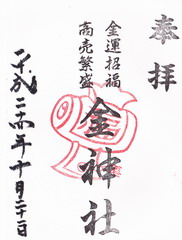 奉拝
金運招福
商売繁盛
金神社
平成二十年十月二十一日